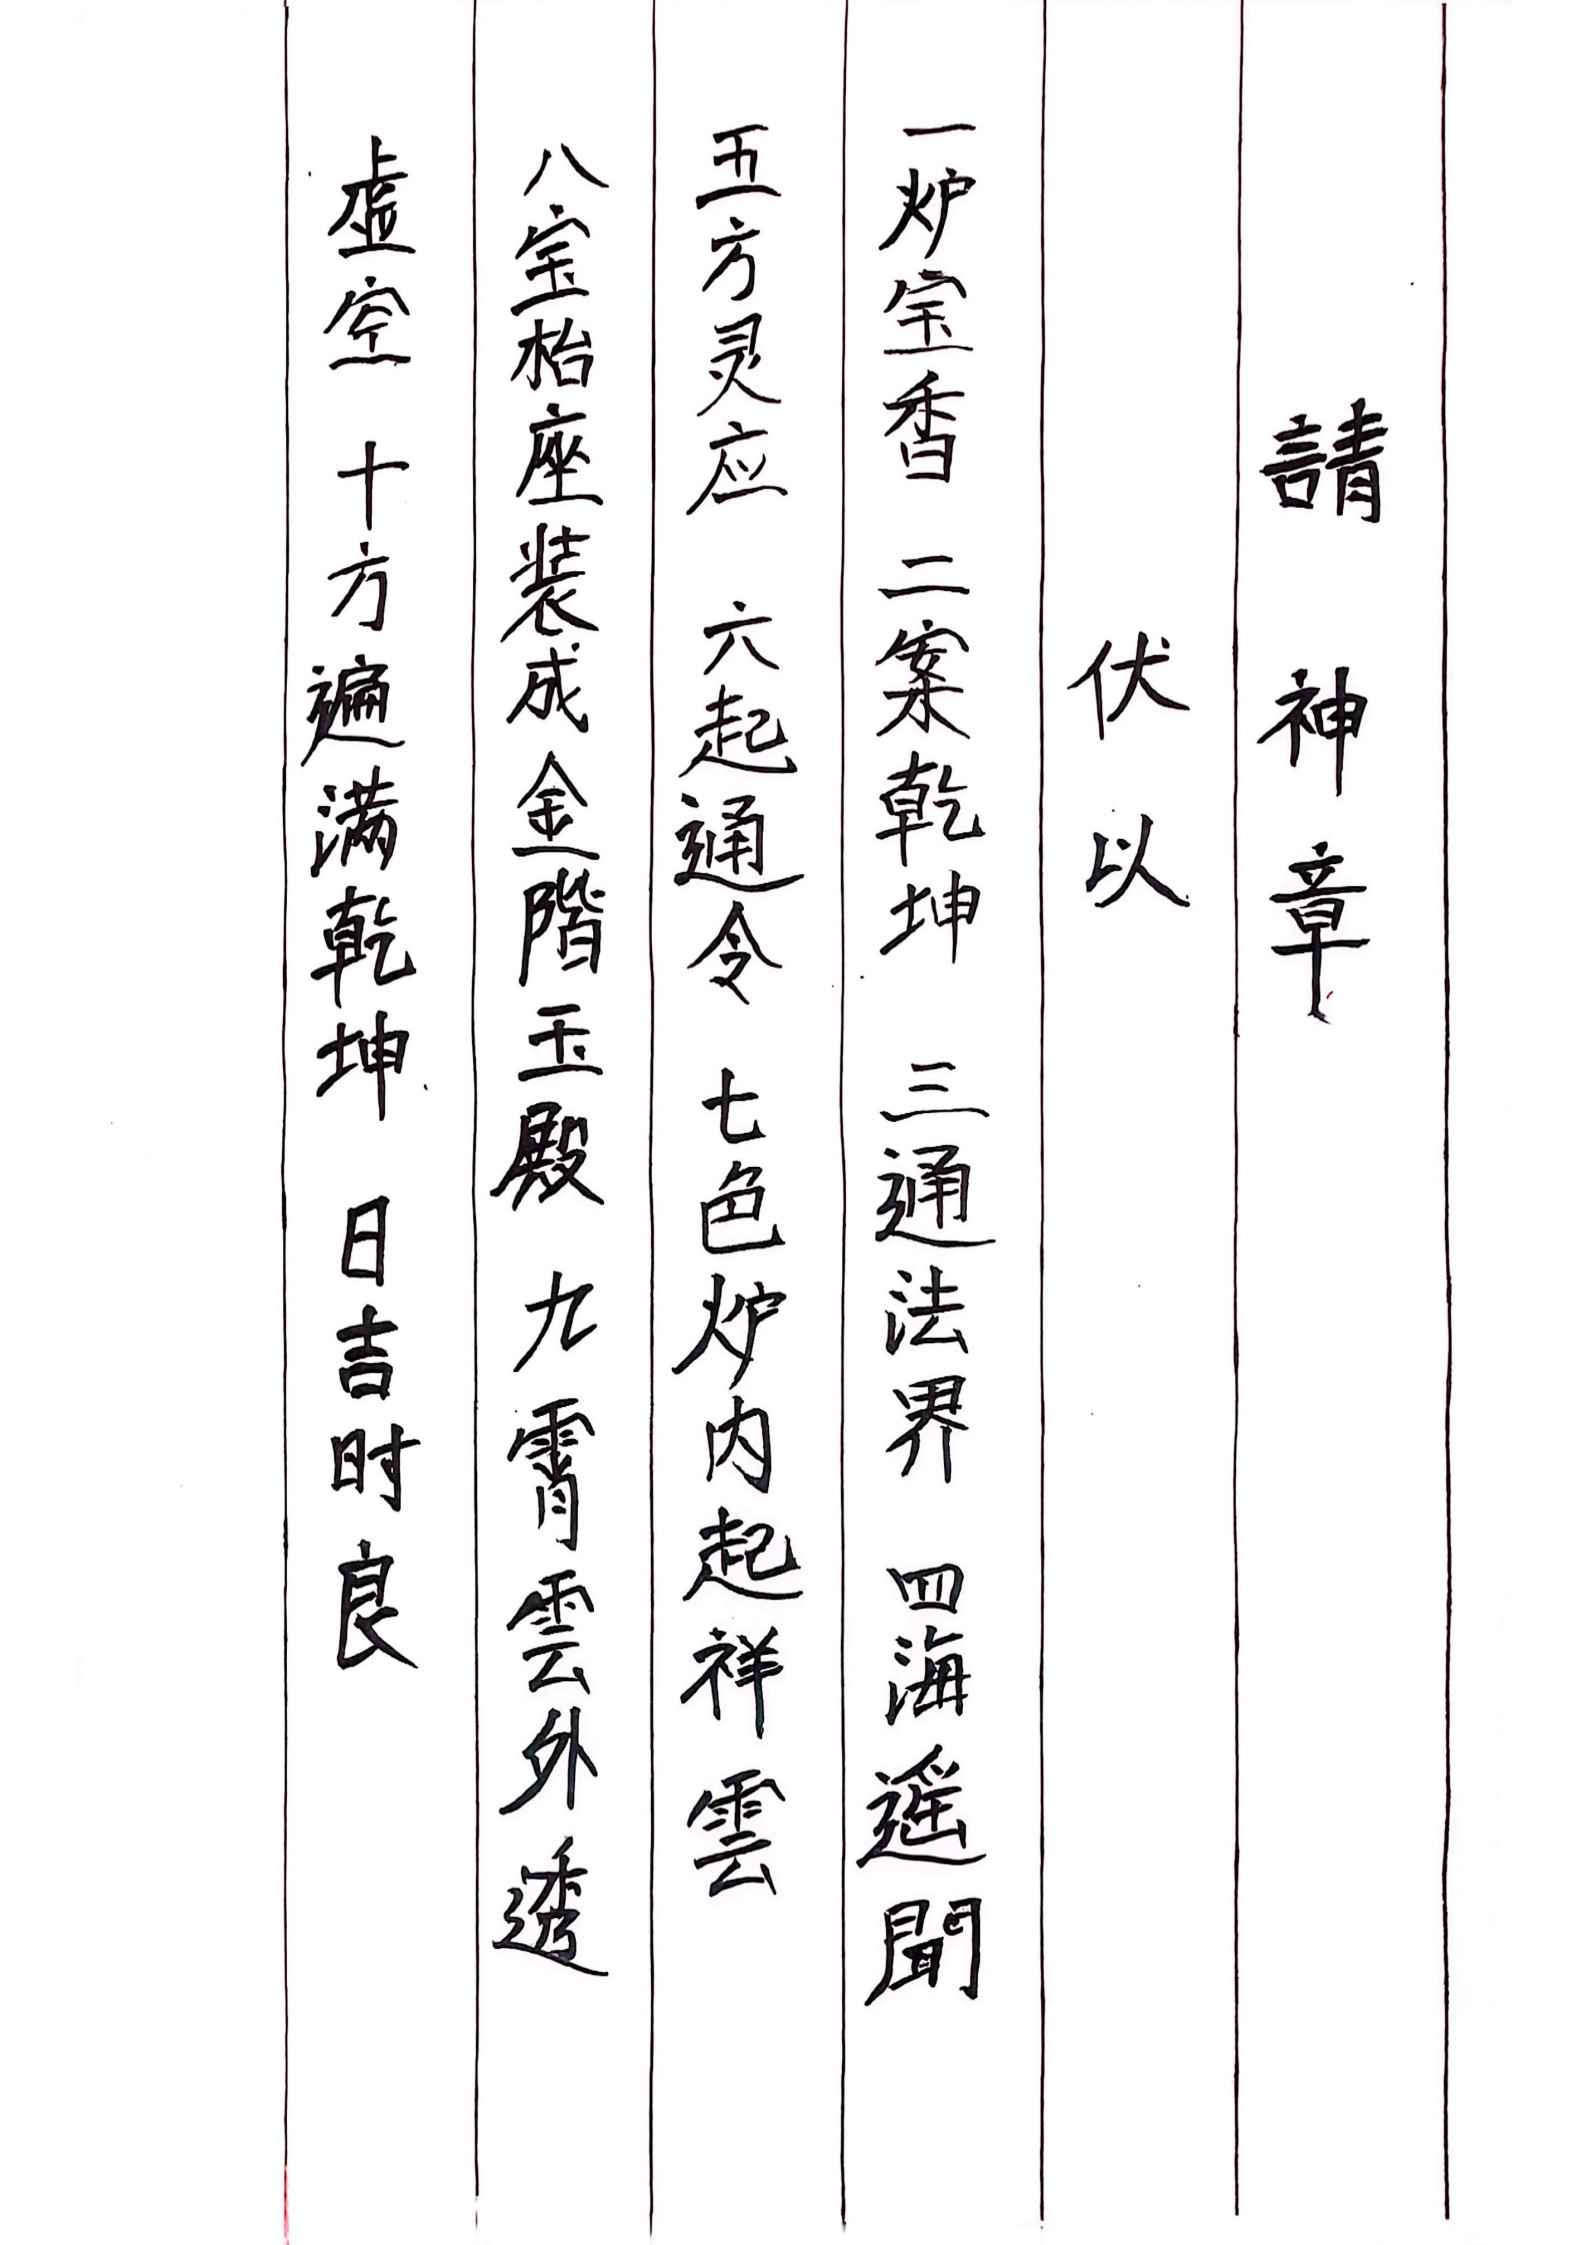 請神章
伏以
一炉宝香 二案乾坤 三通法界 四海遥聞
五方灵应 六起通令 七色炉内起祥雲
八宝枱座装成金階玉殿 九霄雲外透
虚空 十方遍满乾坤 日吉时良